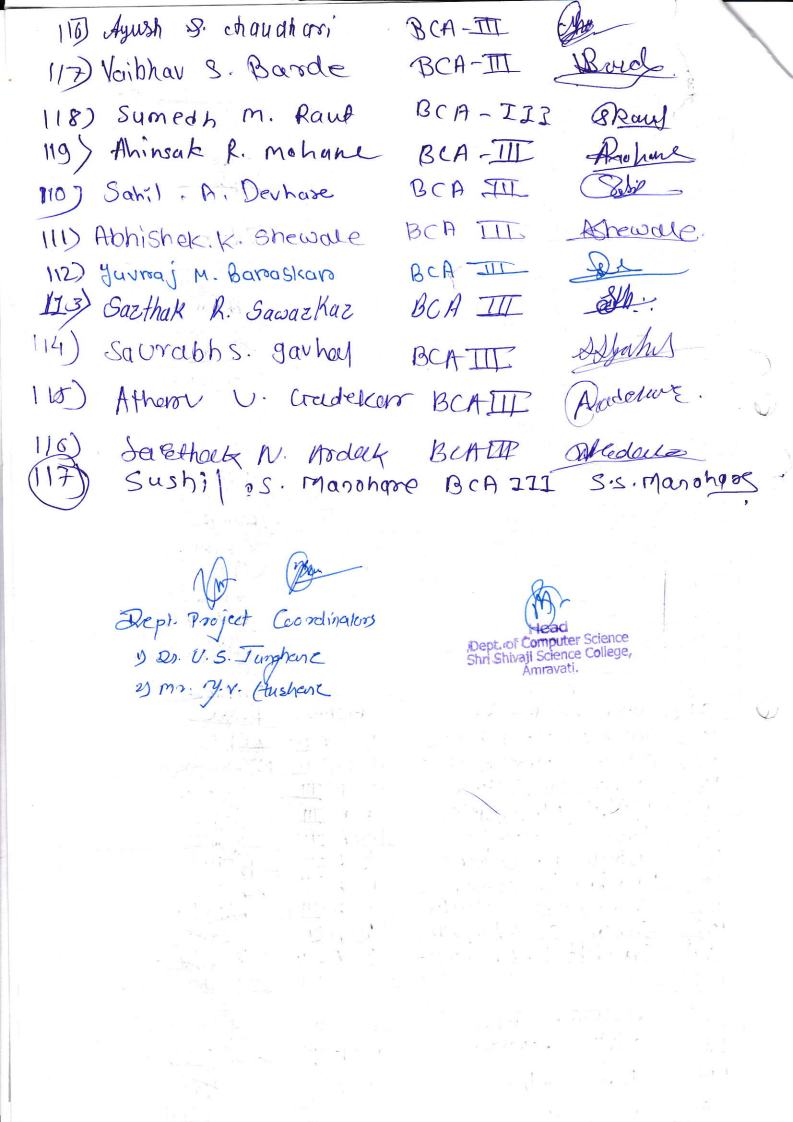 116) Ayush S. chaudhari BCA-III
117) Vaibhav S. Barde BCA-III Bard
118) Sumedh M. Raut BCA-III SRaut
119) Ahinsak R. Mohane BCA-III
110) Sahil . A. Devhare BCA III
111) Abhishek.K. Shewale BCA III AShewale.
112) Yuvraj M. Baraskar BCA III
113) Sarthak R. Sawarkar BCA III
114) Saurabh S. gavhal BCA III
115) Atharv V. Gadekar BCA III
116) Sarthak N. Ardak BCA III
117) Sushil S. Manohare BCA III S.S. Manohare
Dept. Project Coordinators
1) Dr. U. S. Junghare
2) Mr. Y.V.
Head
Dept. of Computer Science
Shri Shivaji Science College,
Amravati.